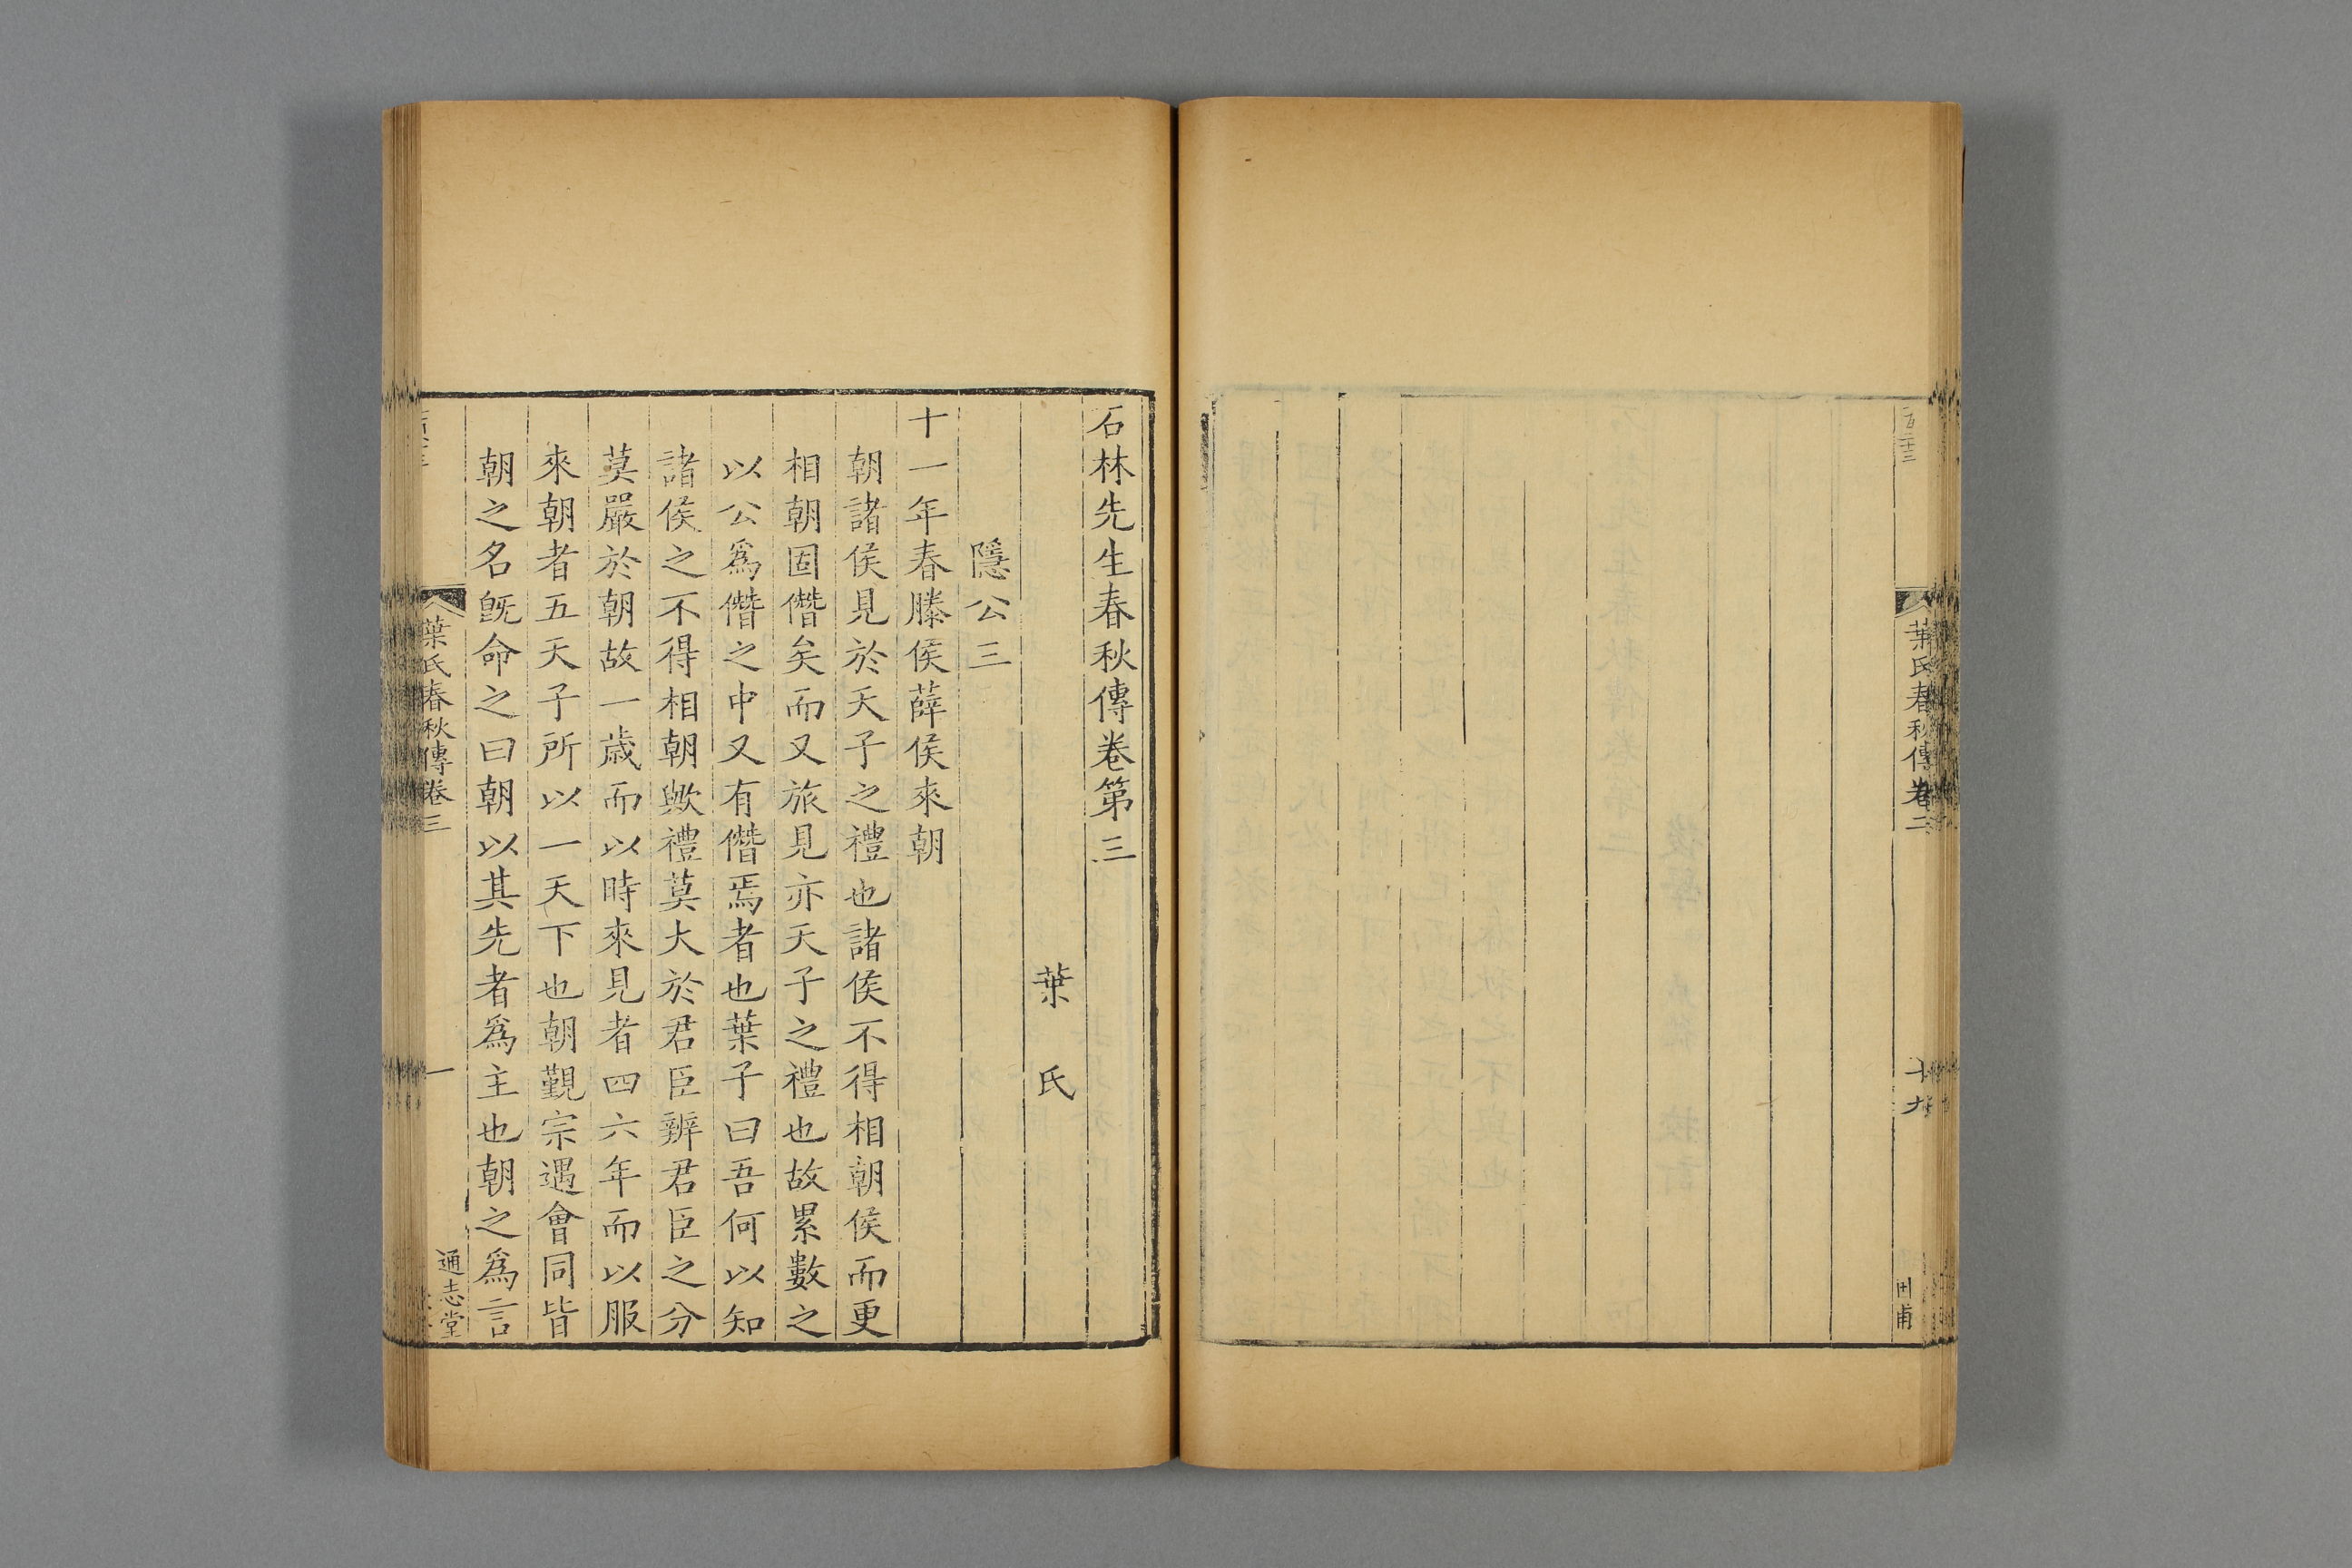 葉氏春秋傳卷二
十九
田甫
石林先生春秋傳卷第三
葉氏
隱公三
十一年春滕侯薛侯來朝
朝諸侯見於天子之禮也諸侯不得相朝侯而更
相朝固僭矣而又旅見亦天子之禮也故累數之
以公爲僭之中又有僭焉者也葉子曰吾何以知
諸侯之不得相朝歟禮莫大於君臣辨君臣之分
莫嚴於朝故一歲而以時來見者四六年而以服
來朝者五天子所以一天下也朝覲宗遇會同皆
朝之名旣命之曰朝以其先者爲主也朝之爲言
葉氏春秋傳卷三
一
通志堂